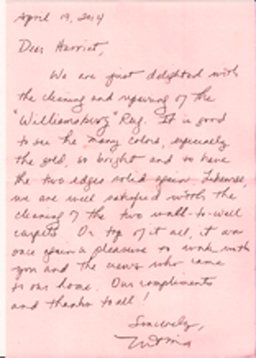 April 19, 2014
Dear Harriet,
We are just delighted with
the cleaning and repairing of the
"Williamsburg" Rug. It is good
to see the many colors, especially
the gold, so bright and so have
the two edges solid again. Likewise,
we are well satisfied with the
cleaning of the two wall-to-wall
carpets. On top of it all, it was
once again a pleasure to work with
you and the crews who came
to our home. Our compliments
and thanks to all!
Sincerely,